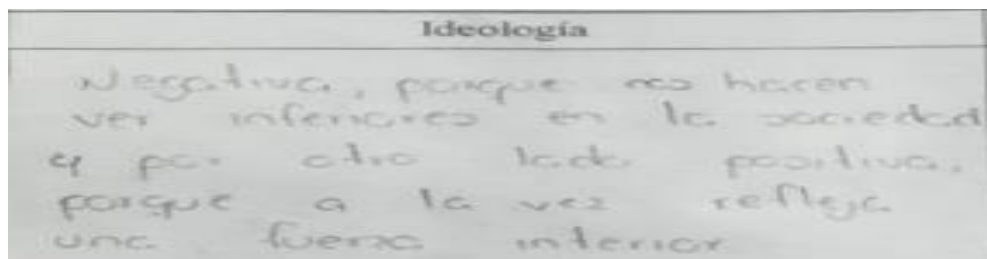 Ideología
Negativa, porque nos hacen
ver inferiores en la sociedad
y por otro lado positiva,
porque a la vez refleja
una fuerza interior